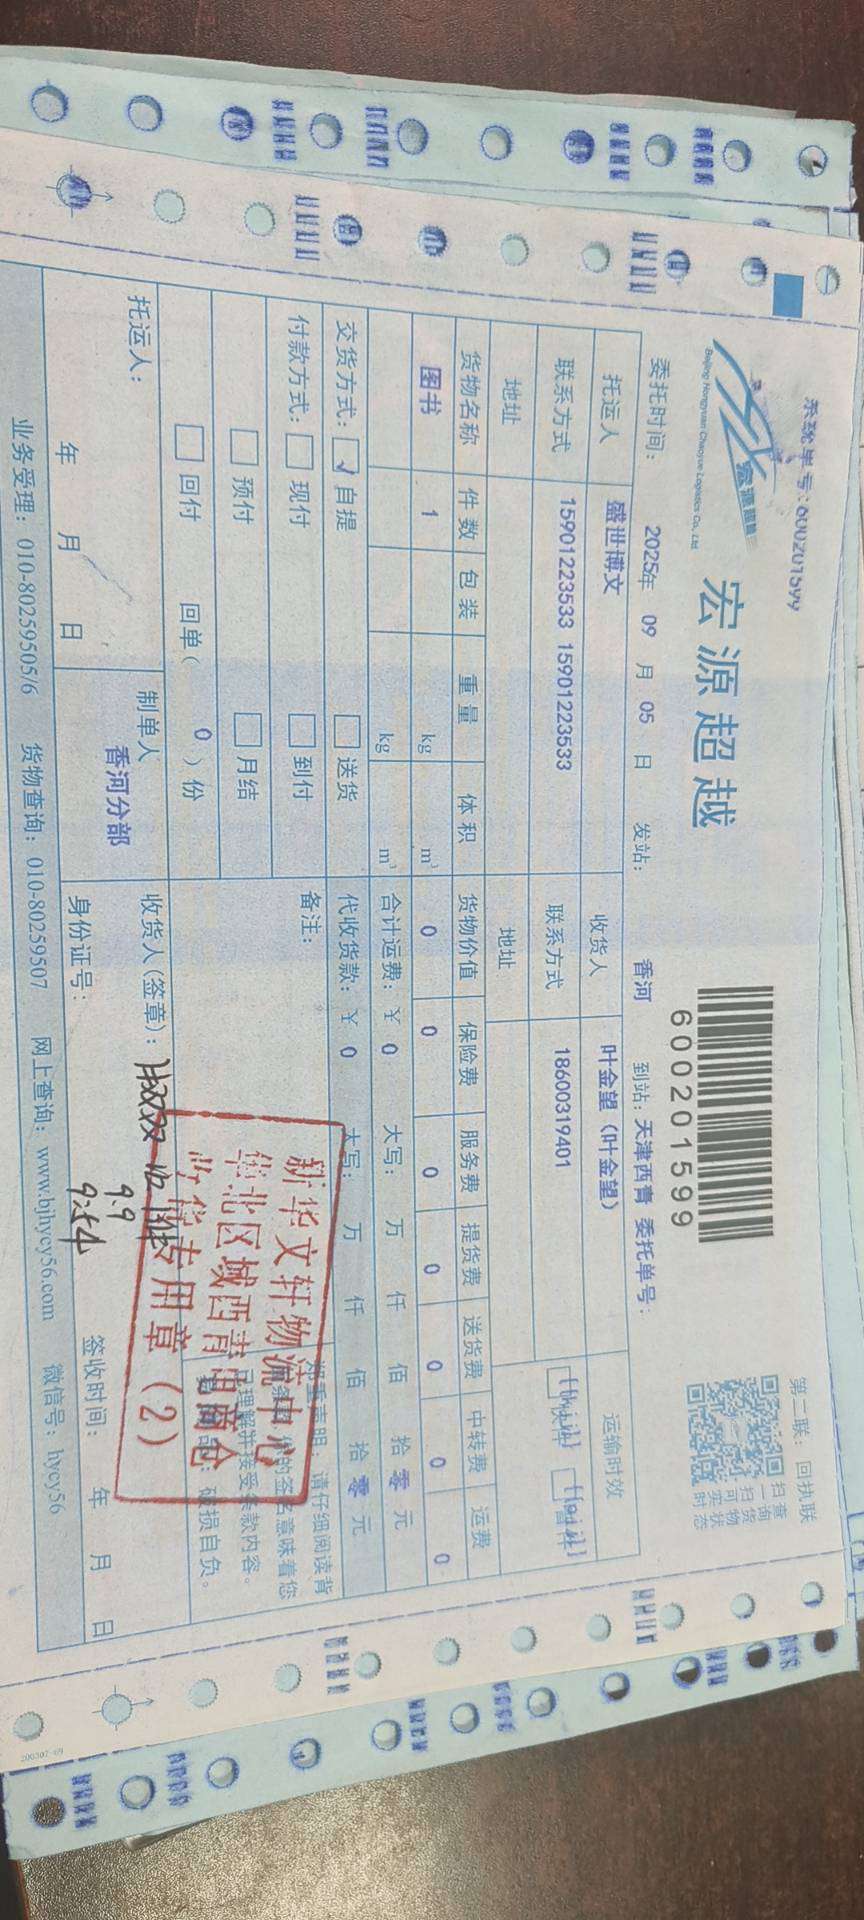 系统单号:600201599
宏源超越
Beijing Hongyuan Chaoyue Logistics Co., Ltd
宏源超越
600201599
第二联：回执联
扫一扫
查询货物
可实时状态
委托时间： 2025年 09 月 05 日 发站： 香河 到站：天津西青 委托单号：
托运人 盛世博文 收货人 叶金望（叶金望） 运输时效
联系方式 15901223533 15901223533 联系方式 18600319401
地址 地址
货物名称 件数 包装 重量 体积 货物价值 保险费 服务费 提货费 送货费 中转费 运费
图书 1 kg m³ 0 0 0 0 0 0 0
kg m³ 合计运费：¥ 0 大写： 万 仟 佰 拾 零 元
交货方式： √ 自提 送货 代收货款：¥ 0 大写： 万 仟 佰 拾 零 元
付款方式： 现付 到付 备注：
预付 月结
回付 回单( 0 )份
郑重声明：请仔细阅读背
的签名意味着您
已理解并接受条款内容。
破损自负。
新华文轩物流中心
华北区域西青电商仓
收货专用章（2）
托运人： 制单人 收货人(签章)：
香河分部
9.9
年 月 日 身份证号： 9:54 签收时间： 年 月 日
业务受理：010-80259505/6 货物查询：010-80259507 网上查询：www.bjhycy56.com 微信号：hycy56
200307-09